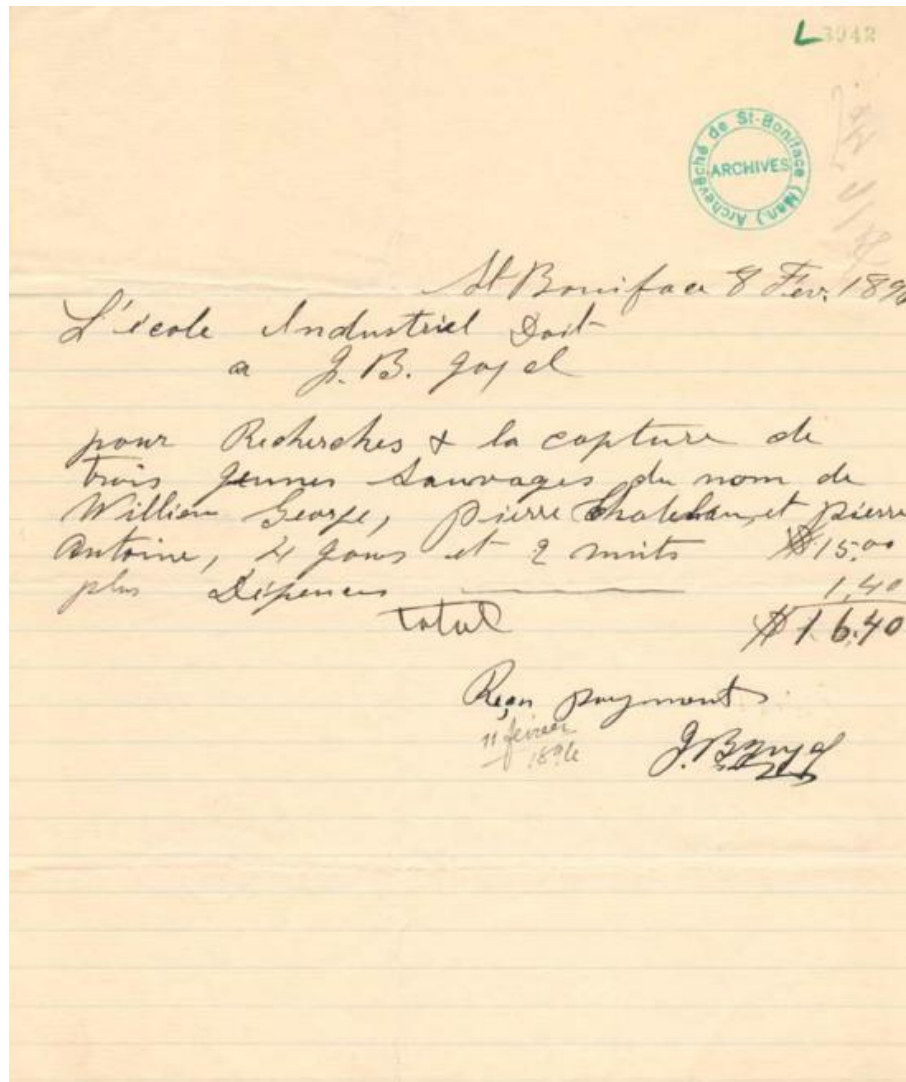 L 3942
Archevêché de St-Boniface (Man.)
ARCHIVES
St Boniface 8 Fev. 189
L'école Industriel Doit
a J. B. Goyel
pour Recherches & la capture de
trois jeunes Sauvages du nom de
William George, pierre et pierre
Antoine, 4 jours et 2 nuits $15.00
plus Dépences 1,40
total $16.40
Reçu payment
11 février
189
J. B.